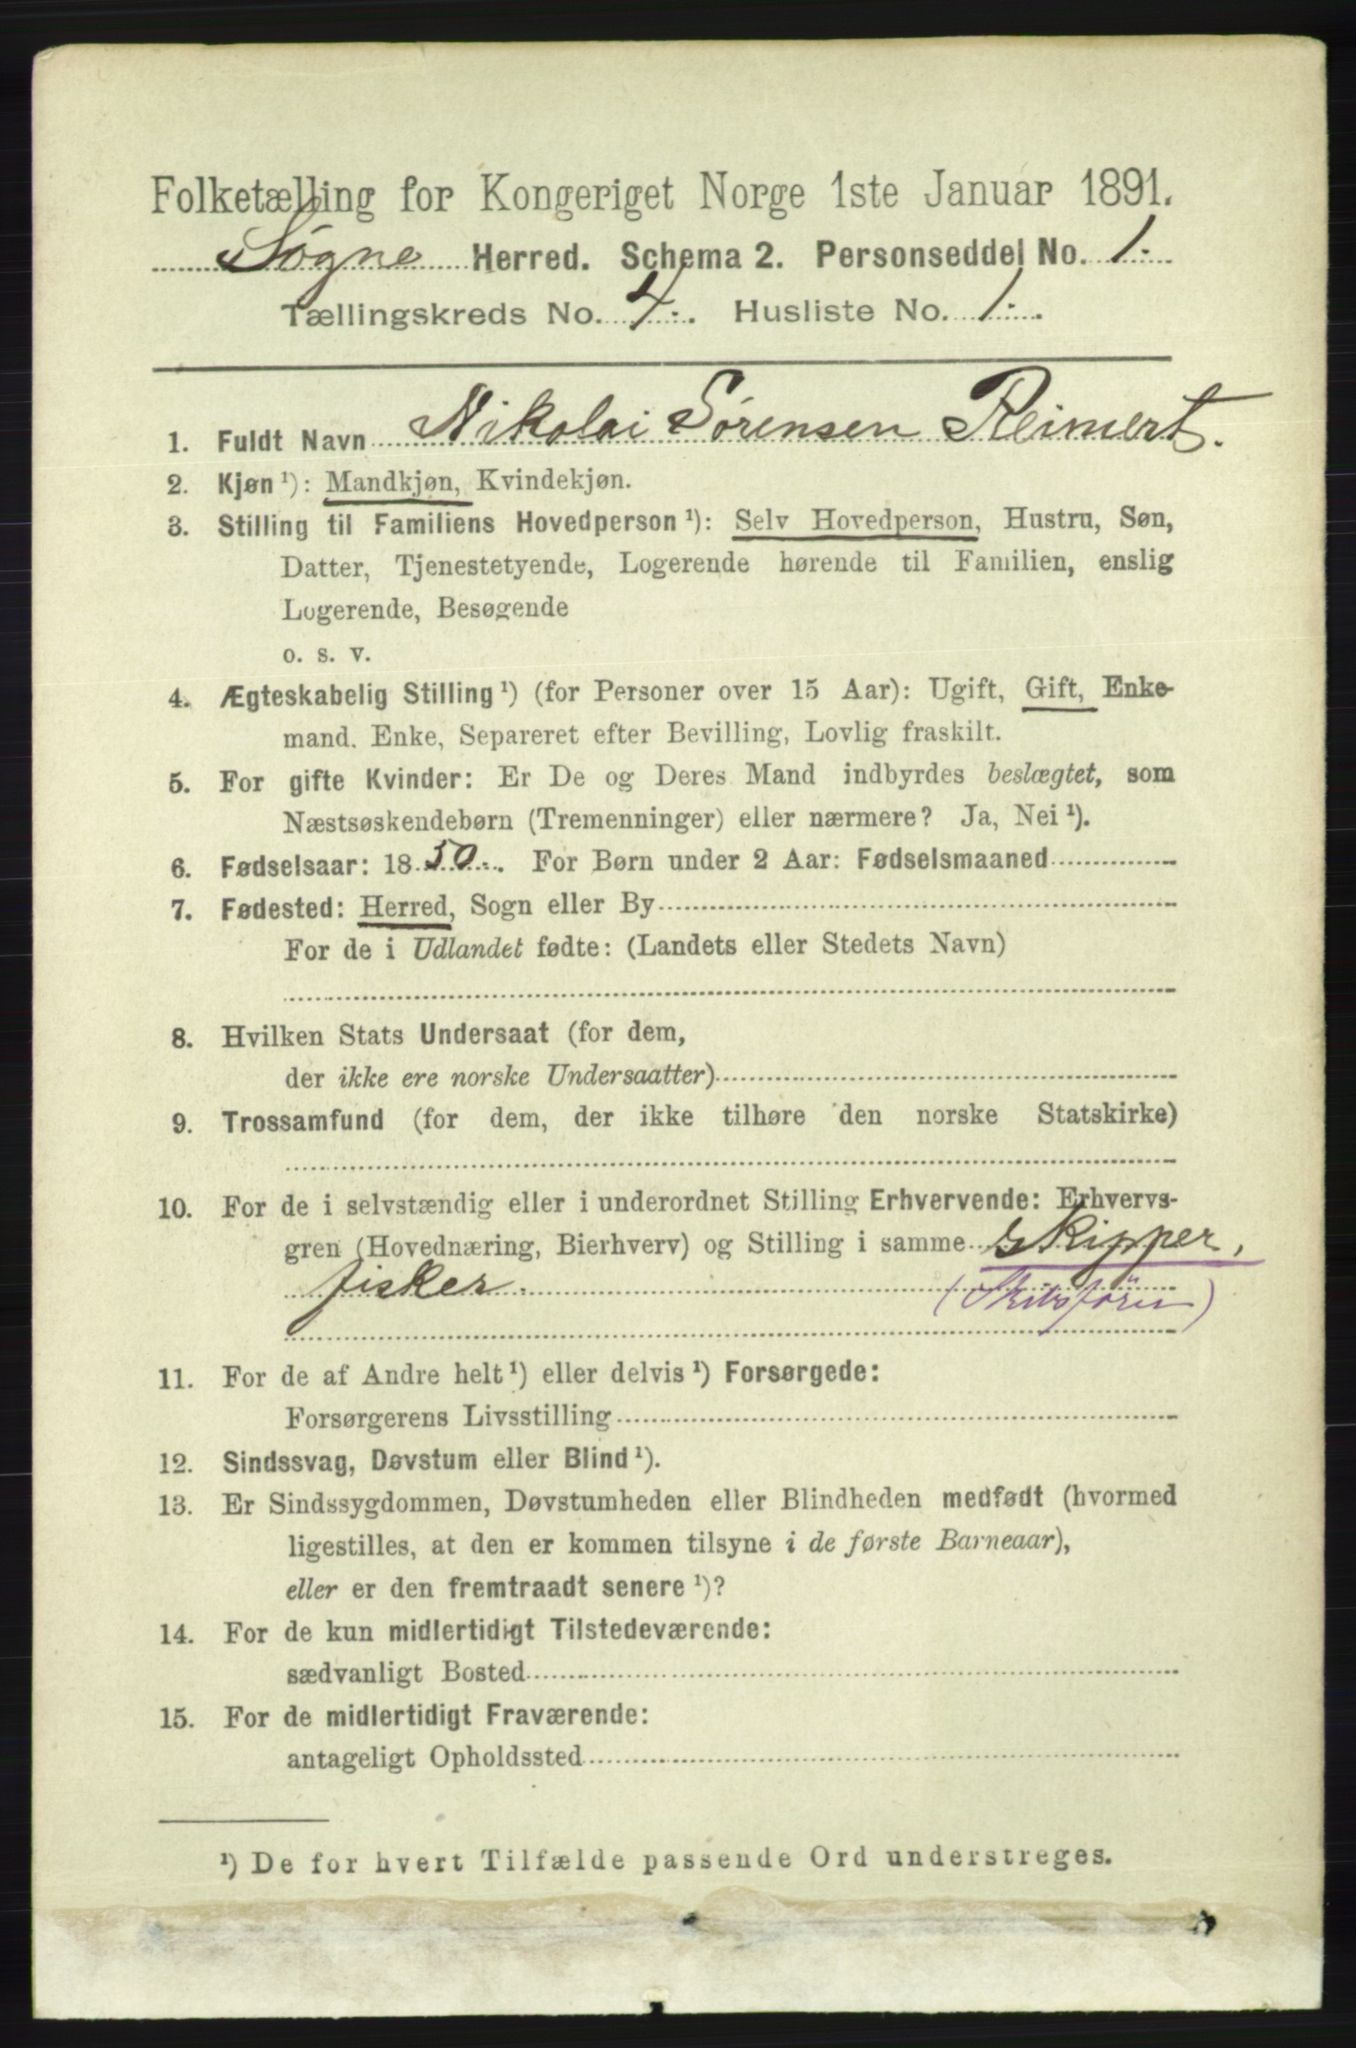 Folketælling for Kongeriget Norge 1ste Januar 1891.
Søgne Herred. Schema 2. Personseddel No. 1.
Tællingskreds No. 4. Husliste No. 1.
1. Fuldt Navn Nikolai Sørensen Reimert.
2. Kjøn ¹): Mandkjøn, Kvindekjøn.
3. Stilling til Familiens Hovedperson ¹): Selv Hovedperson, Hustru, Søn,
Datter, Tjenestetyende, Logerende hørende til Familien, enslig
Logerende, Besøgende
o. s. v.
4. Ægteskabelig Stilling ¹) (for Personer over 15 Aar): Ugift, Gift, Enke-
mand. Enke, Separeret efter Bevilling, Lovlig fraskilt.
5. For gifte Kvinder: Er De og Deres Mand indbyrdes beslægtet, som
Næstsøskendebørn (Tremenninger) eller nærmere? Ja, Nei ¹).
6. Fødselsaar: 1850. For Børn under 2 Aar: Fødselsmaaned
7. Fødested: Herred, Sogn eller By
For de i Udlandet fødte: (Landets eller Stedets Navn)
8. Hvilken Stats Undersaat (for dem,
der ikke ere norske Undersaatter)
9. Trossamfund (for dem, der ikke tilhøre den norske Statskirke)
10. For de i selvstændig eller i underordnet Stilling Erhvervende: Erhvervs-
gren (Hovednæring, Bierhverv) og Stilling i samme skipper,
fisker. (Skibsfører)
11. For de af Andre helt ¹) eller delvis ¹) Forsørgede:
Forsørgerens Livsstilling
12. Sindssvag, Døvstum eller Blind ¹).
13. Er Sindssygdommen, Døvstumheden eller Blindheden medfødt (hvormed
ligestilles, at den er kommen tilsyne i de første Barneaar),
eller er den fremtraadt senere ¹)?
14. For de kun midlertidigt Tilstedeværende:
sædvanligt Bosted
15. For de midlertidigt Fraværende:
antageligt Opholdssted
¹) De for hvert Tilfælde passende Ord understreges.